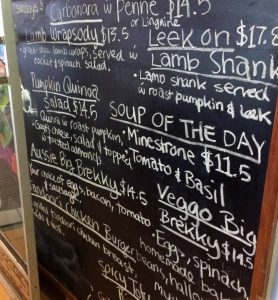 Carbonara w Penne $14.5
or Linguine
Lamb Wrapsody $15.5
lamb wrap, served w
rocket & spinach salad.
Pumpkin Quinoa
Salad $14.5
Quinoa w roast pumpkin,
cheese, salad & topped
w toasted almonds
Aussie Big Brekky $14.5
your choice of eggs, bacon, tomato,
& sausages.
Tandoori Chicken Burger
tandoori chicken breast,
Leek on $17.8
Lamb Shank
• Lamb shank served
w roast pumpkin & leek
SOUP OF THE DAY
• Minestrone
• Tomato & Basil
$11.5
Veggo Big
Brekky $14.5
• Eggs, spinach,
homemade baked
beans,
Spicy